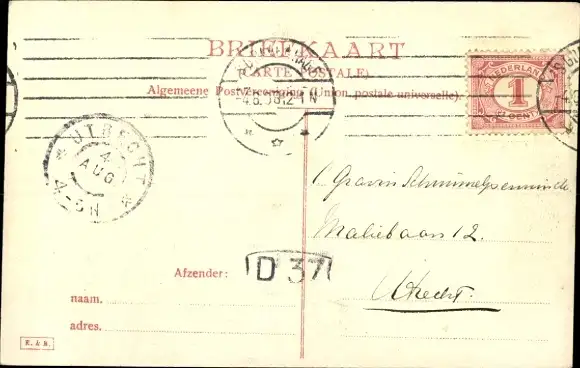 BRIEFKAART
(CARTE POSTALE)
Algemeene Postvereeniging (Union postale universelle).
NEDERLAND
1
CENT
4.8. 12-1N
UTRECHT
4
AUG
4-5N
Gravin Schimmelpenninck
Maliebaan 12.
Utrecht.
D 37
Afzender:
naam.
adres.